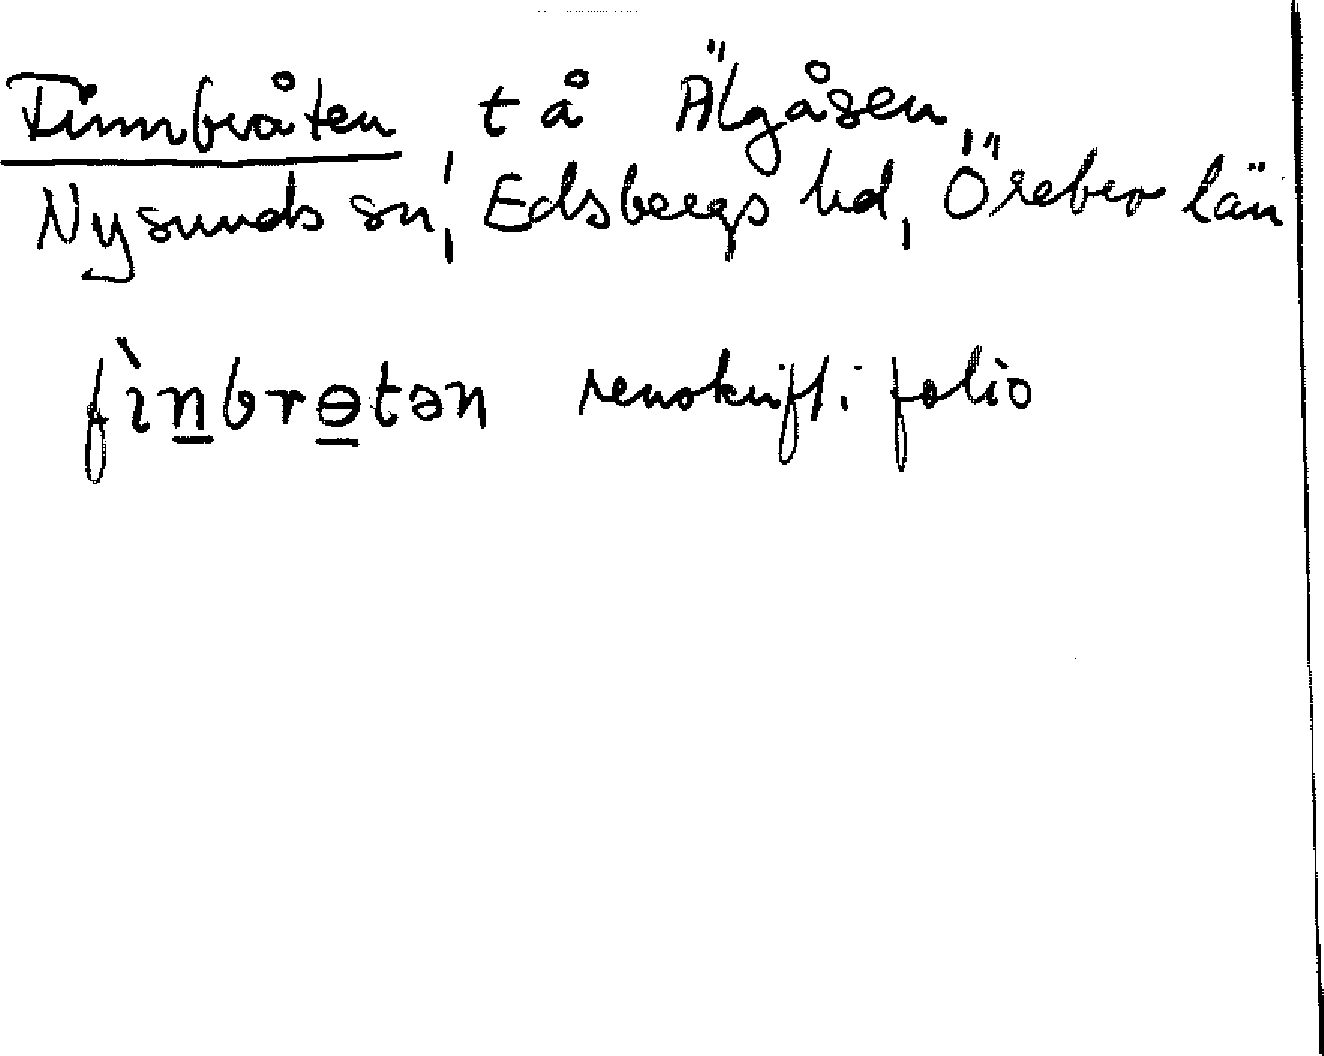 Finnbråten t å Älgåsen,
Nysunds sn, Edsbergs hd, Örebro län
fìn̲brɵ̲tən renskrift i folio